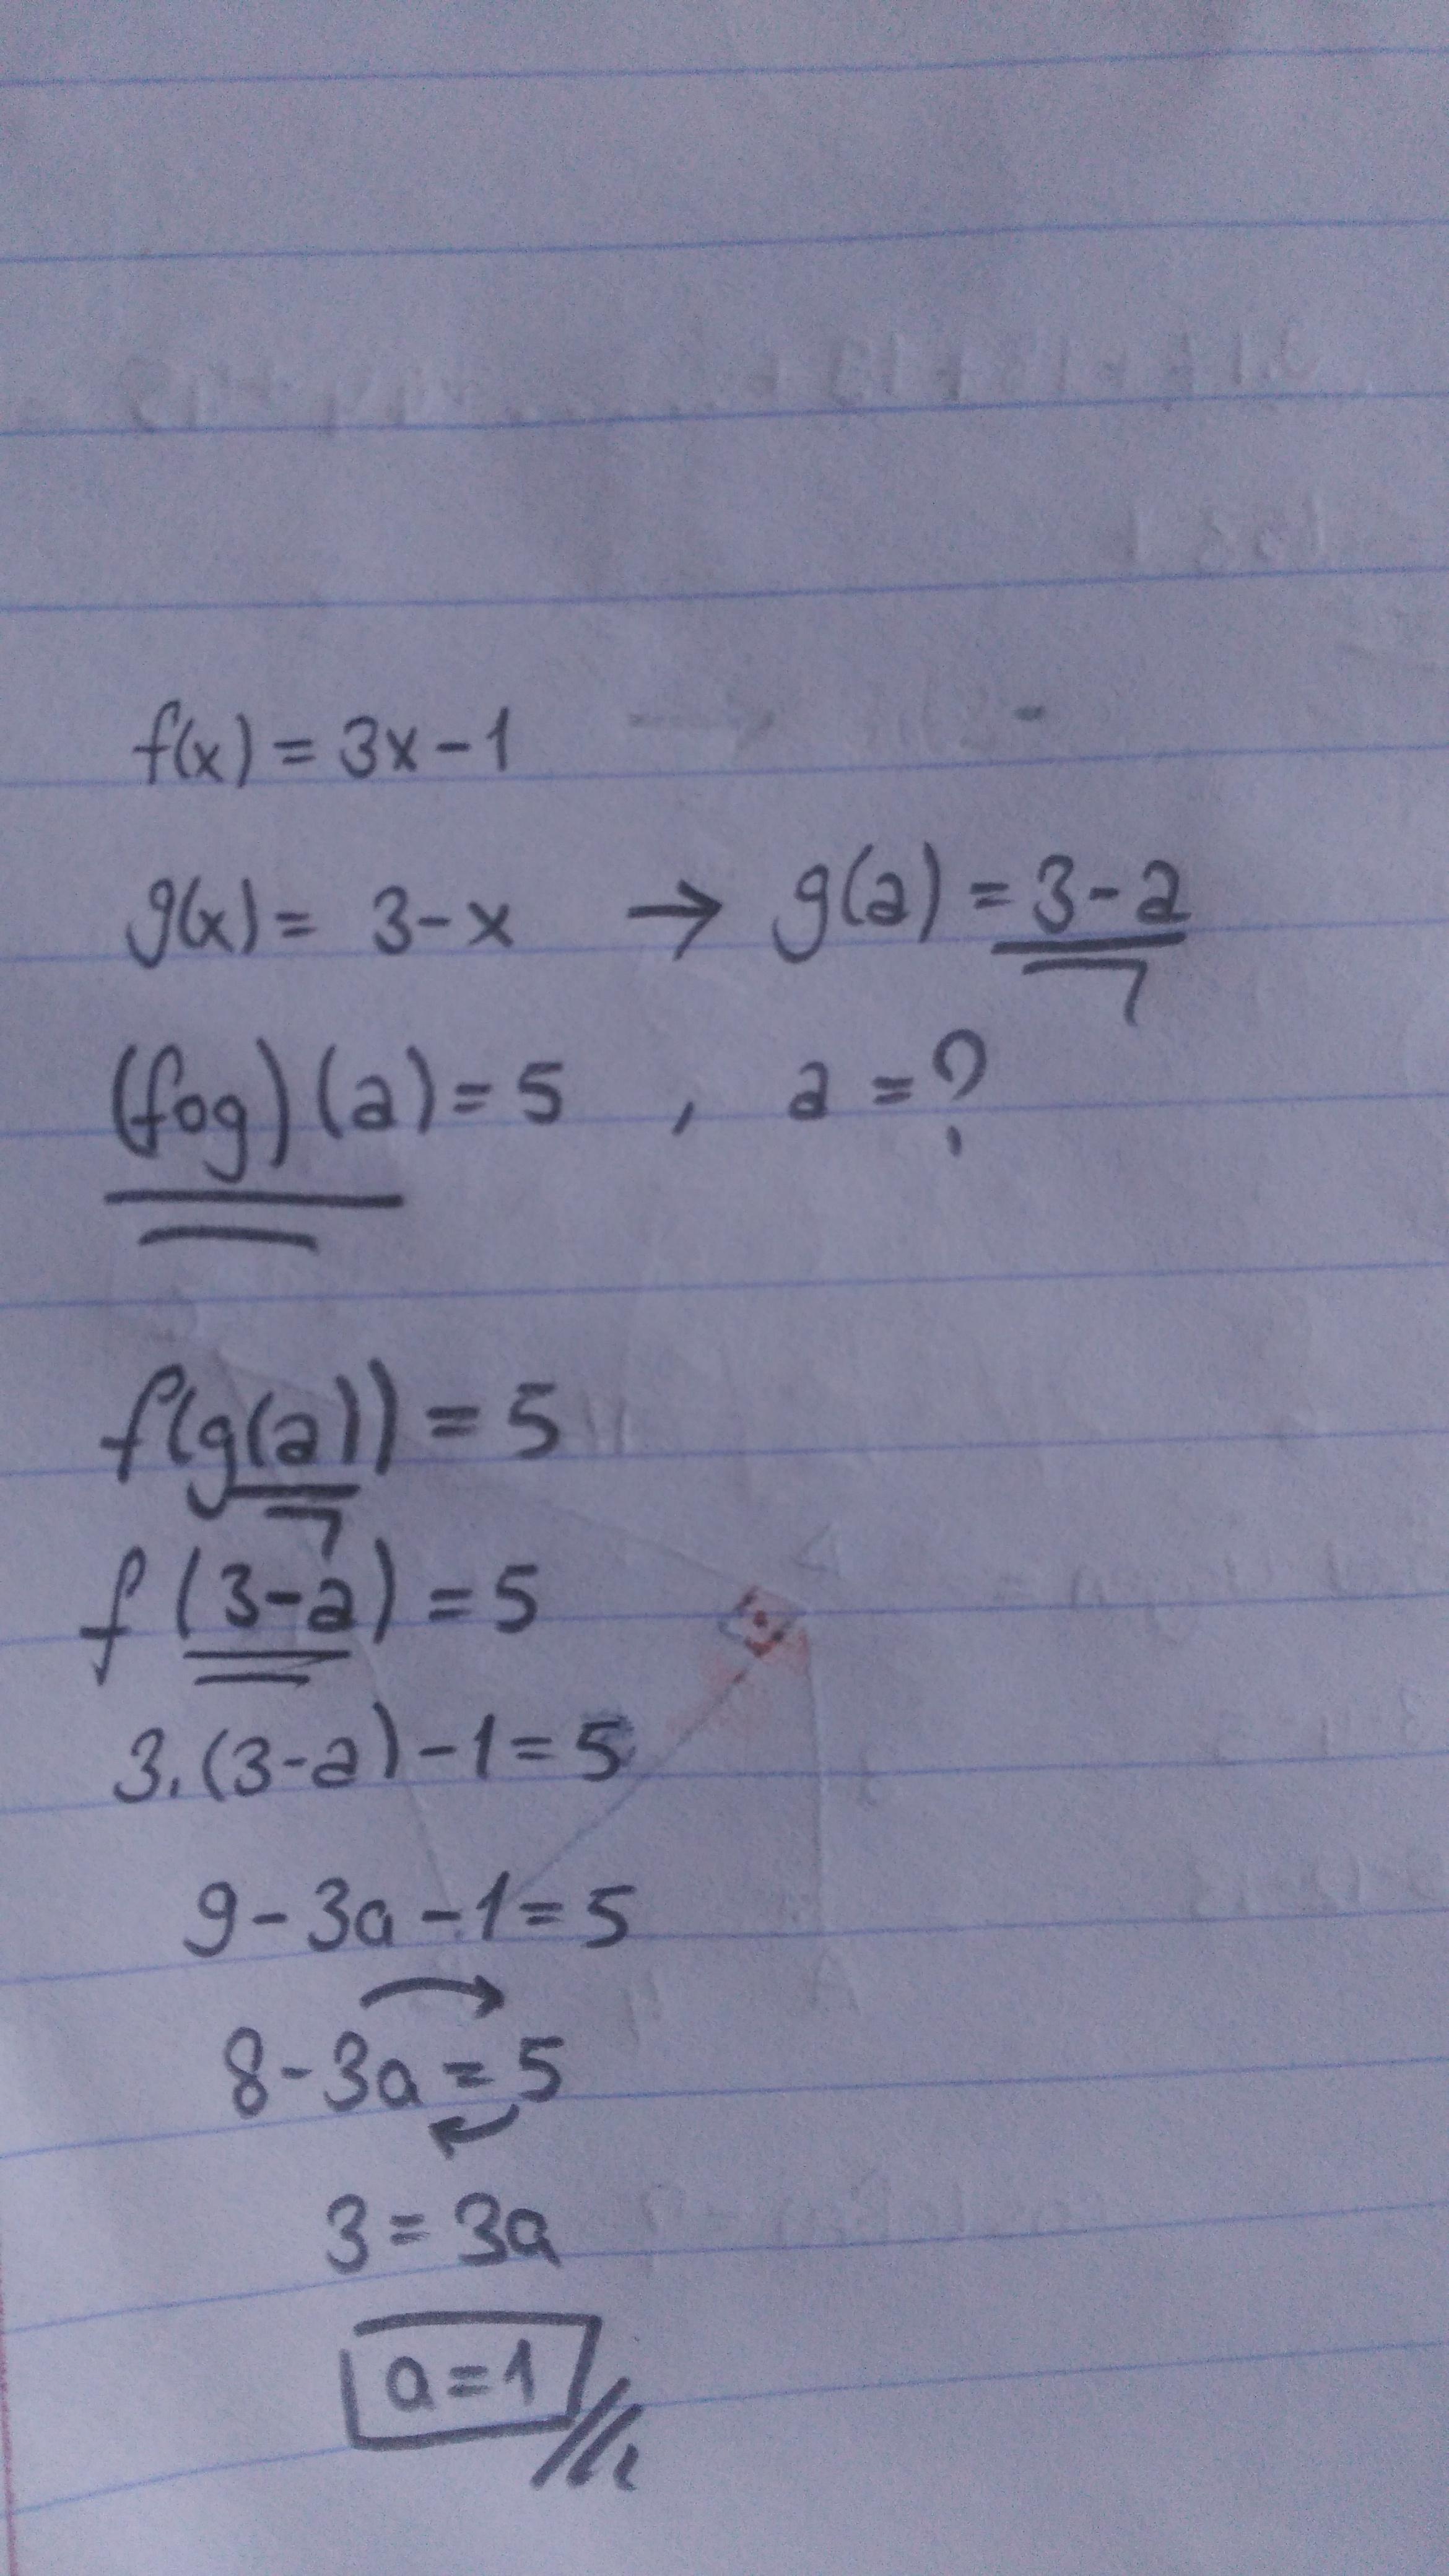 f(x) = 3x - 1
g(x) = 3 - x → g(a) = 3 - a
(fog)(a) = 5 , a = ?
f(g(a)) = 5
f(3-a) = 5
3.(3-a) - 1 = 5
9 - 3a - 1 = 5
8 - 3a = 5
3 = 3a
a = 1